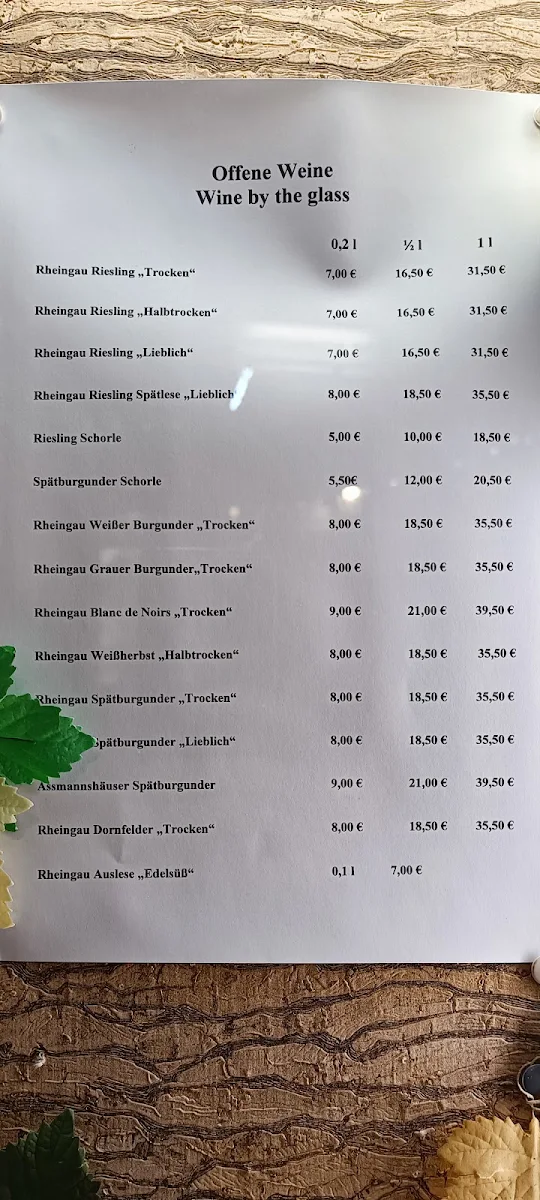 Offene Weine
Wine by the glass
0,2 l ½ l 1 l
Rheingau Riesling „Trocken“ 7,00 € 16,50 € 31,50 €
Rheingau Riesling „Halbtrocken“ 7,00 € 16,50 € 31,50 €
Rheingau Riesling „Lieblich“ 7,00 € 16,50 € 31,50 €
Rheingau Riesling Spätlese „Lieblich 8,00 € 18,50 € 35,50 €
Riesling Schorle 5,00 € 10,00 € 18,50 €
Spätburgunder Schorle 5,50€ 12,00 € 20,50 €
Rheingau Weißer Burgunder „Trocken“ 8,00 € 18,50 € 35,50 €
Rheingau Grauer Burgunder„Trocken“ 8,00 € 18,50 € 35,50 €
Rheingau Blanc de Noirs „Trocken“ 9,00 € 21,00 € 39,50 €
Rheingau Weißherbst „Halbtrocken“ 8,00 € 18,50 € 35,50 €
Rheingau Spätburgunder „Trocken“ 8,00 € 18,50 € 35,50 €
Spätburgunder „Lieblich“ 8,00 € 18,50 € 35,50 €
Assmannshäuser Spätburgunder 9,00 € 21,00 € 39,50 €
Rheingau Dornfelder „Trocken“ 8,00 € 18,50 € 35,50 €
Rheingau Auslese „Edelsüß“ 0,1 l 7,00 €